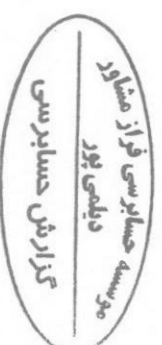 موسسه حسابرسی فراز مشاور
دیلمی پور
گزارش حسابرسی